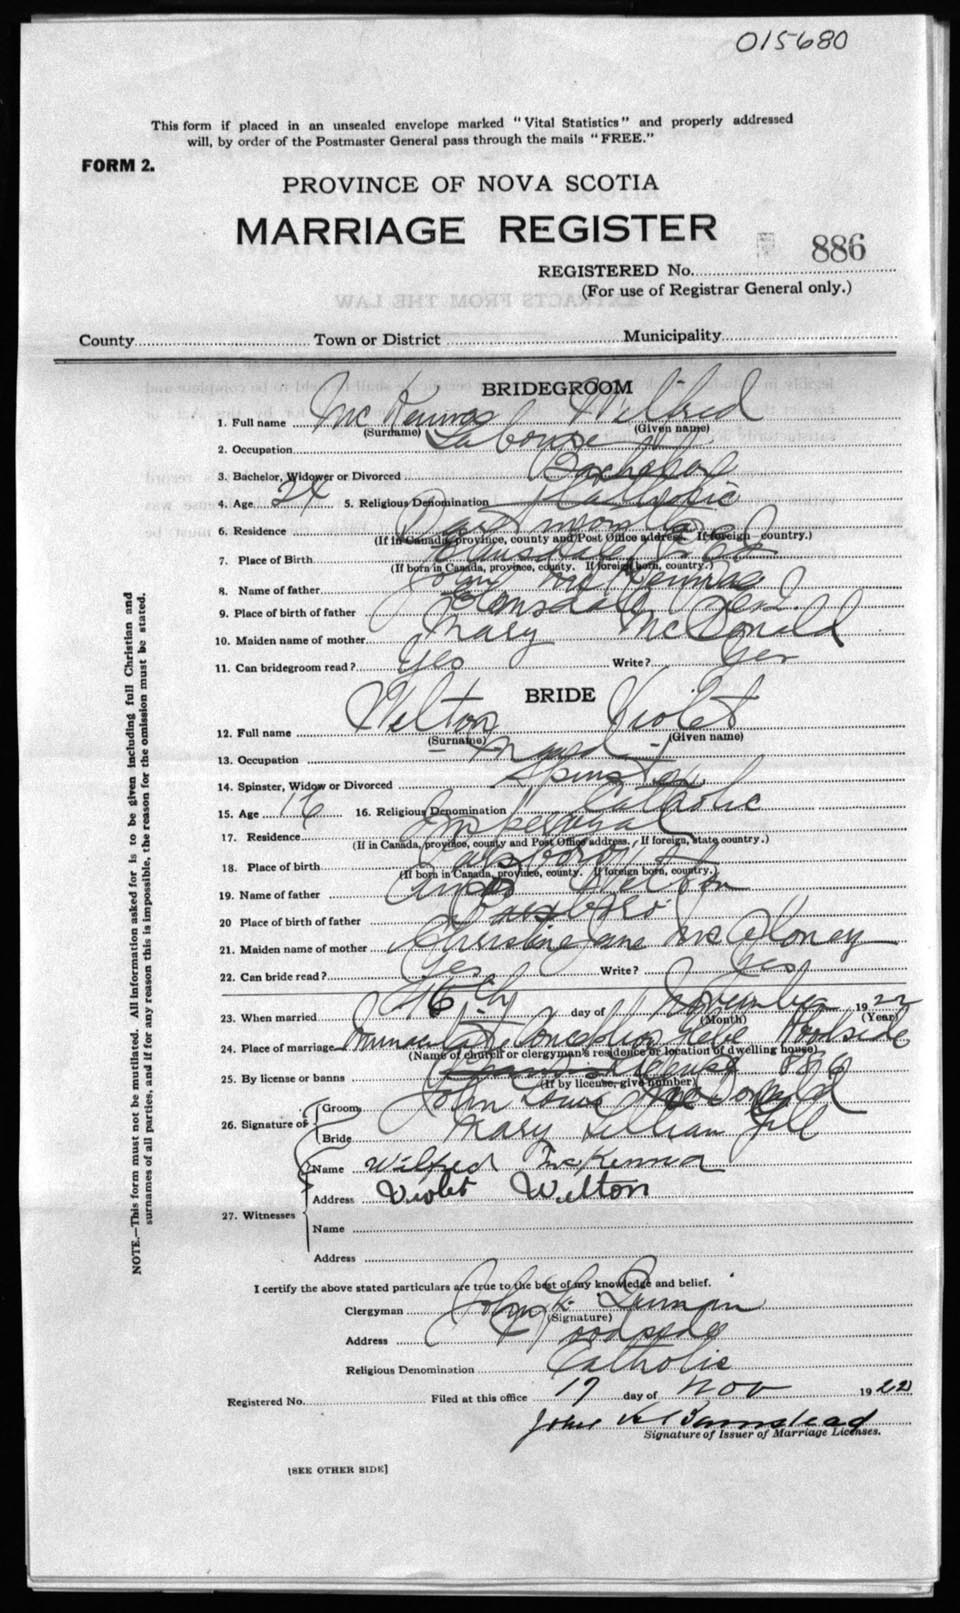 015680
This form if placed in an unsealed envelope marked "Vital Statistics" and properly addressed
will, by order of the Postmaster General pass through the mails "FREE."
FORM 2.
PROVINCE OF NOVA SCOTIA
MARRIAGE REGISTER
886
REGISTERED No.
(For use of Registrar General only.)
County Town or District Municipality
BRIDEGROOM
1. Full name McKenna Wilfred
(Surname) (Given name)
2. Occupation Labourer
3. Bachelor, Widower or Divorced Bachelor
4. Age 24 5. Religious Denomination Catholic
6. Residence Dartmouth
(If in Canada, province, county and Post Office address. If foreign country.)
7. Place of Birth
(If born in Canada, province, county. If foreign born, country.)
8. Name of father John McKenna
9. Place of birth of father
10. Maiden name of mother Mary McDonald
11. Can bridegroom read? Yes Write? Yes
BRIDE
12. Full name Welton Violet
(Surname) (Given name)
13. Occupation Maid
14. Spinster, Widow or Divorced Spinster
15. Age 16 16. Religious Denomination Catholic
17. Residence Imperoyal
(If in Canada, province, county and Post Office address. If foreign, state country.)
18. Place of birth Parsboro
(If born in Canada, province, county. If foreign born, country.)
19. Name of father Amos Welton
20 Place of birth of father Parsboro
21. Maiden name of mother Christine Jane
22. Can bride read? Yes Write? Yes
23. When married 16th day of November 1922
(Month) (Year)
24. Place of marriage Immaculate Conception Glebe Woodside
(Name of church or clergyman's residence or location of dwelling house)
25. By license or banns License 886
(If by license, give number)
26. Signature of Groom John Louis McDonald
Bride Mary Lillian Gill
27. Witnesses Name Wilfred McKenna
Address Violet Welton
Name
Address
I certify the above stated particulars are true to the best of my knowledge and belief.
Clergyman John K.
(Signature)
Address Woodside
Religious Denomination Catholic
Registered No. Filed at this office 17 day of Nov 1922
John K Barnstead
Signature of Issuer of Marriage Licenses.
[SEE OTHER SIDE]
NOTE.—This form must not be mutilated. All information asked for is to be given including full Christian and
surnames of all parties, and if for any reason this is impossible, the reason for the omission must be stated.